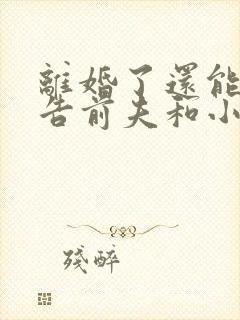 離婚了還能
告前夫和小
殘醉